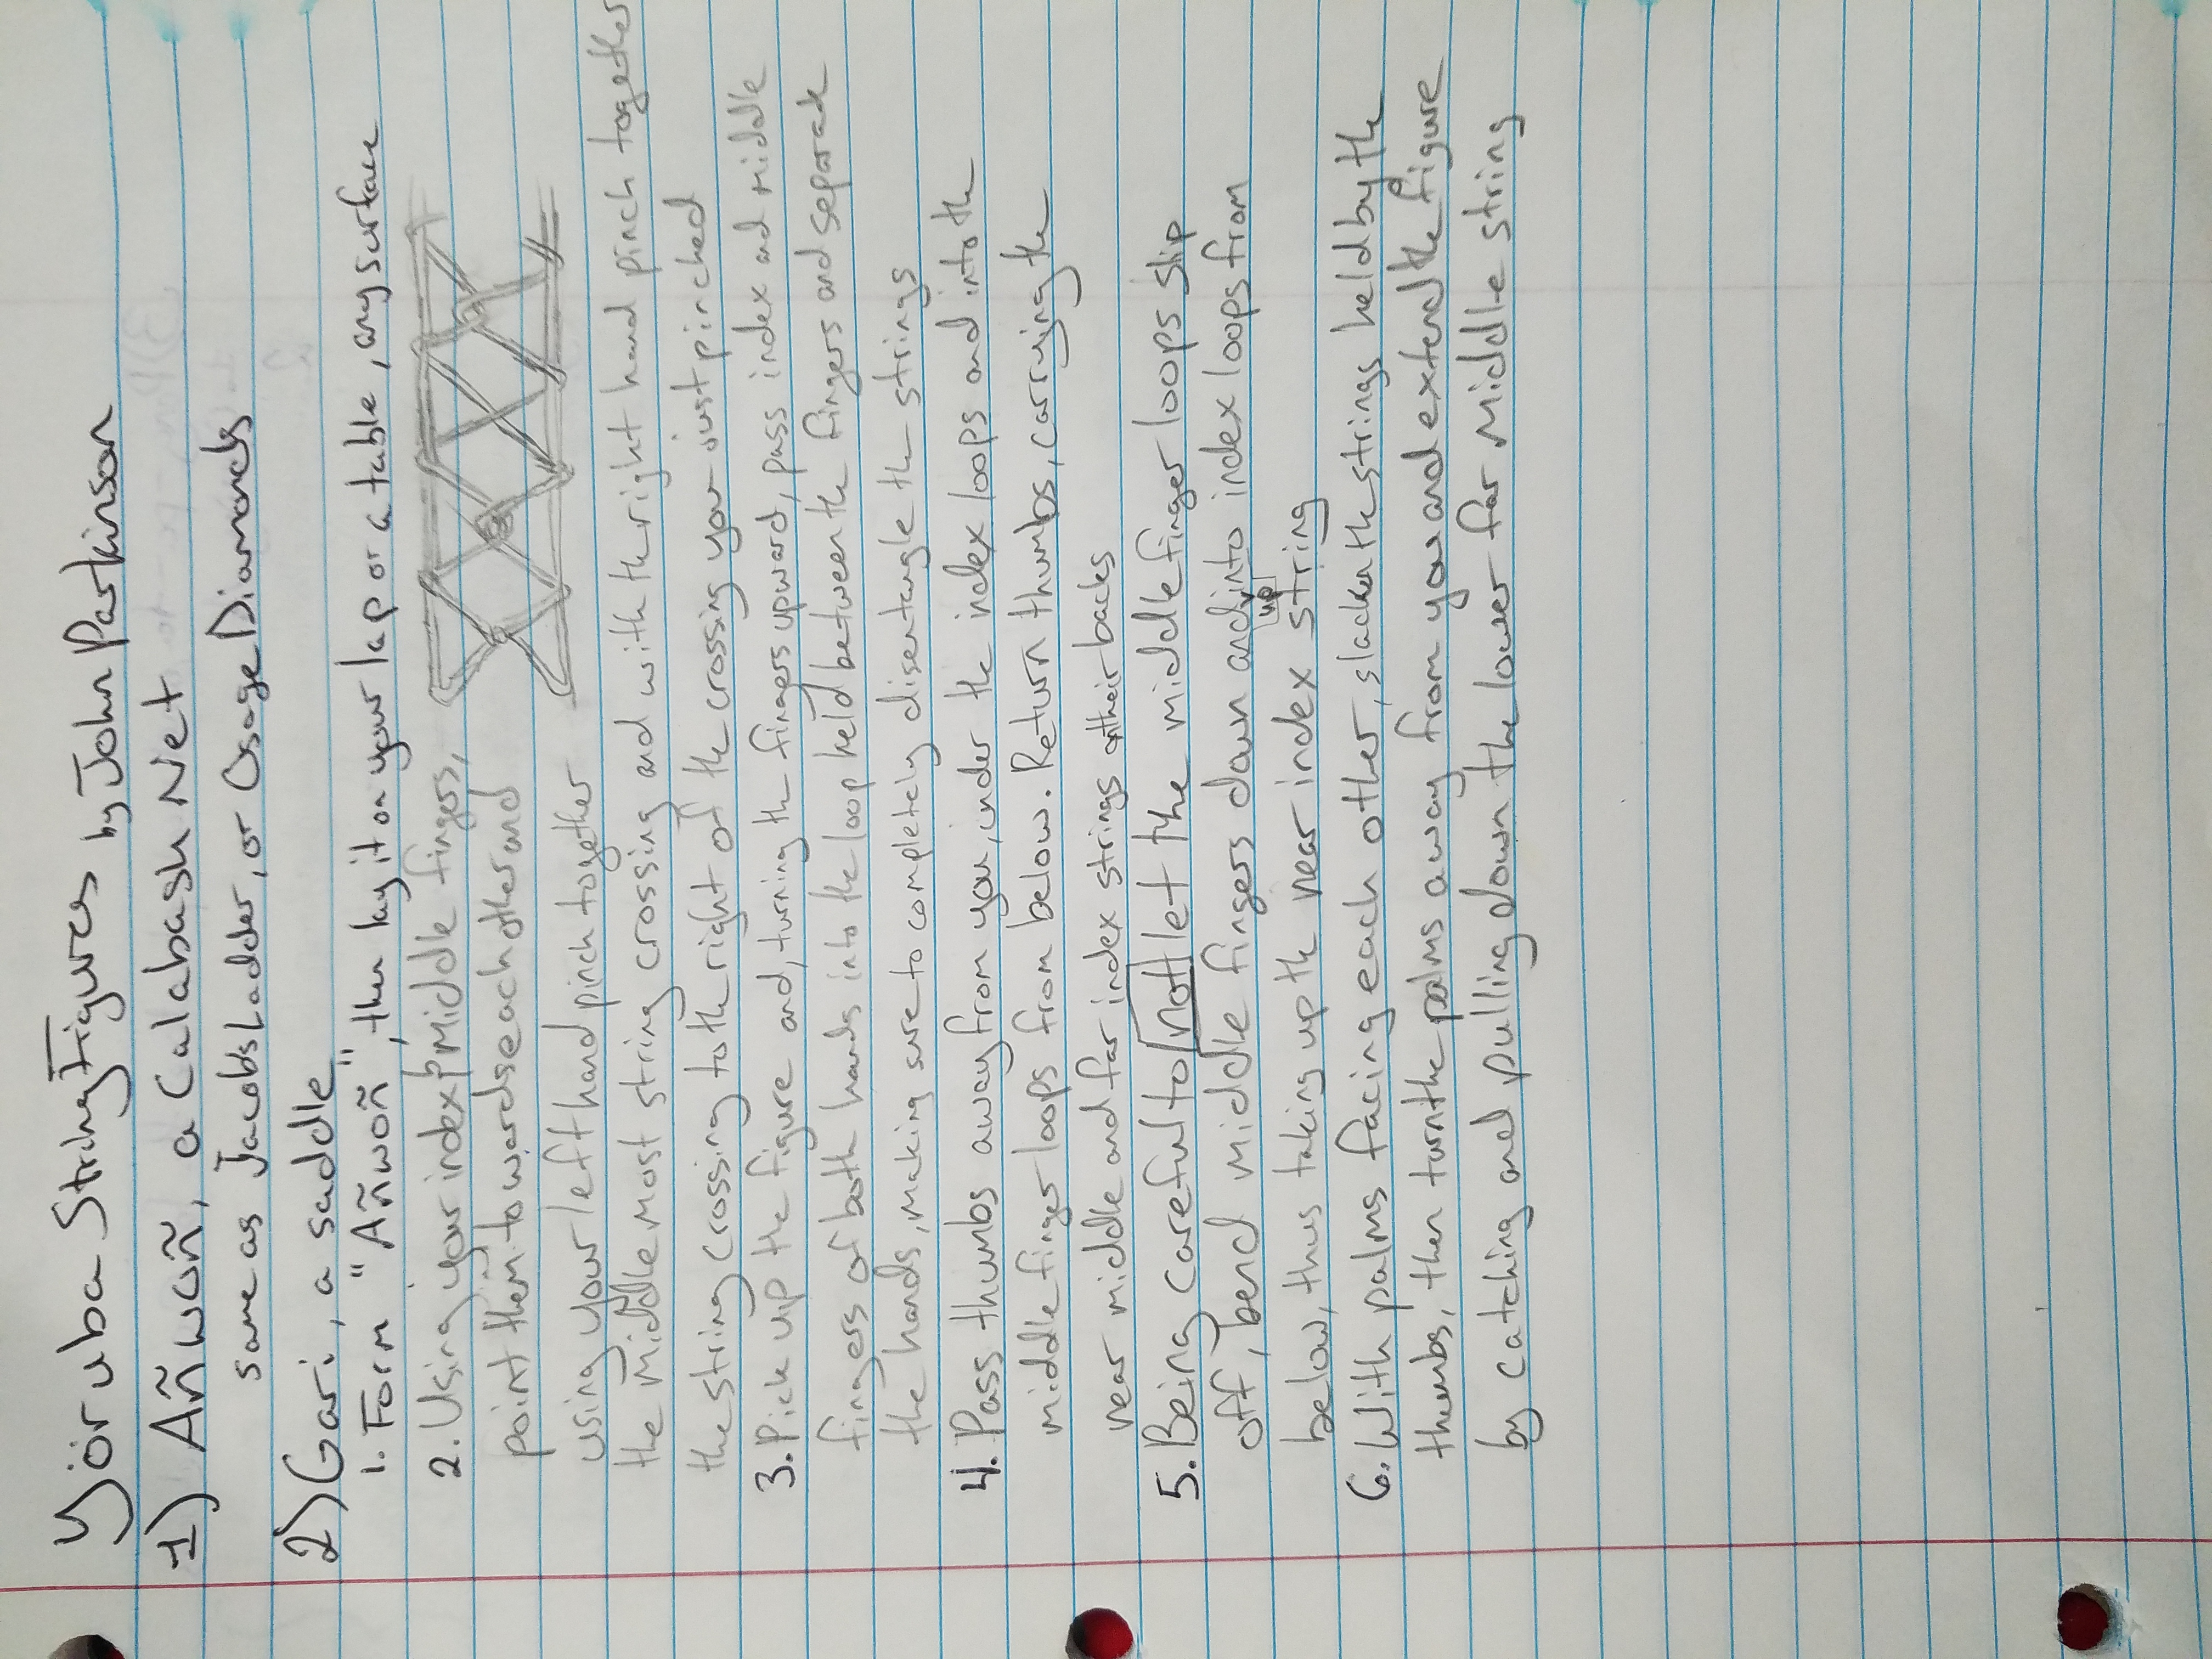 Yöruba String Figures by John Parkinson
1) Añwoñ, a Calabash Net
same as Jacob's Ladder, or Osage Diamonds
2) Gari, a saddle
1. Form "Añwoñ", then lay it on your lap or a table, any surface
2. Using your index & Middle fingers,
point them towards each other and
using your left hand pinch together
the middle most string crossing and with the right hand pinch together
the string crossing to the right of the crossing you just pinched
3. Pick up the figure and, turning the fingers upward, pass index and middle
fingers of both hands into the loop held between the fingers and separate
the hands, making sure to completely disentangle the strings
4. Pass thumbs away from you, under the index loops and into the
middle finger loops from below. Return thumbs, carrying the
near middle and far index strings on their backs
5. Being careful to not let the middle finger loops slip
off, bend middle fingers down and up into index loops from
below, thus taking up the near index string
6. With palms facing each other, slacken the strings held by the
thumbs, then turn the palms away from you and extend the figure
by catching and pulling down the lower far Middle string